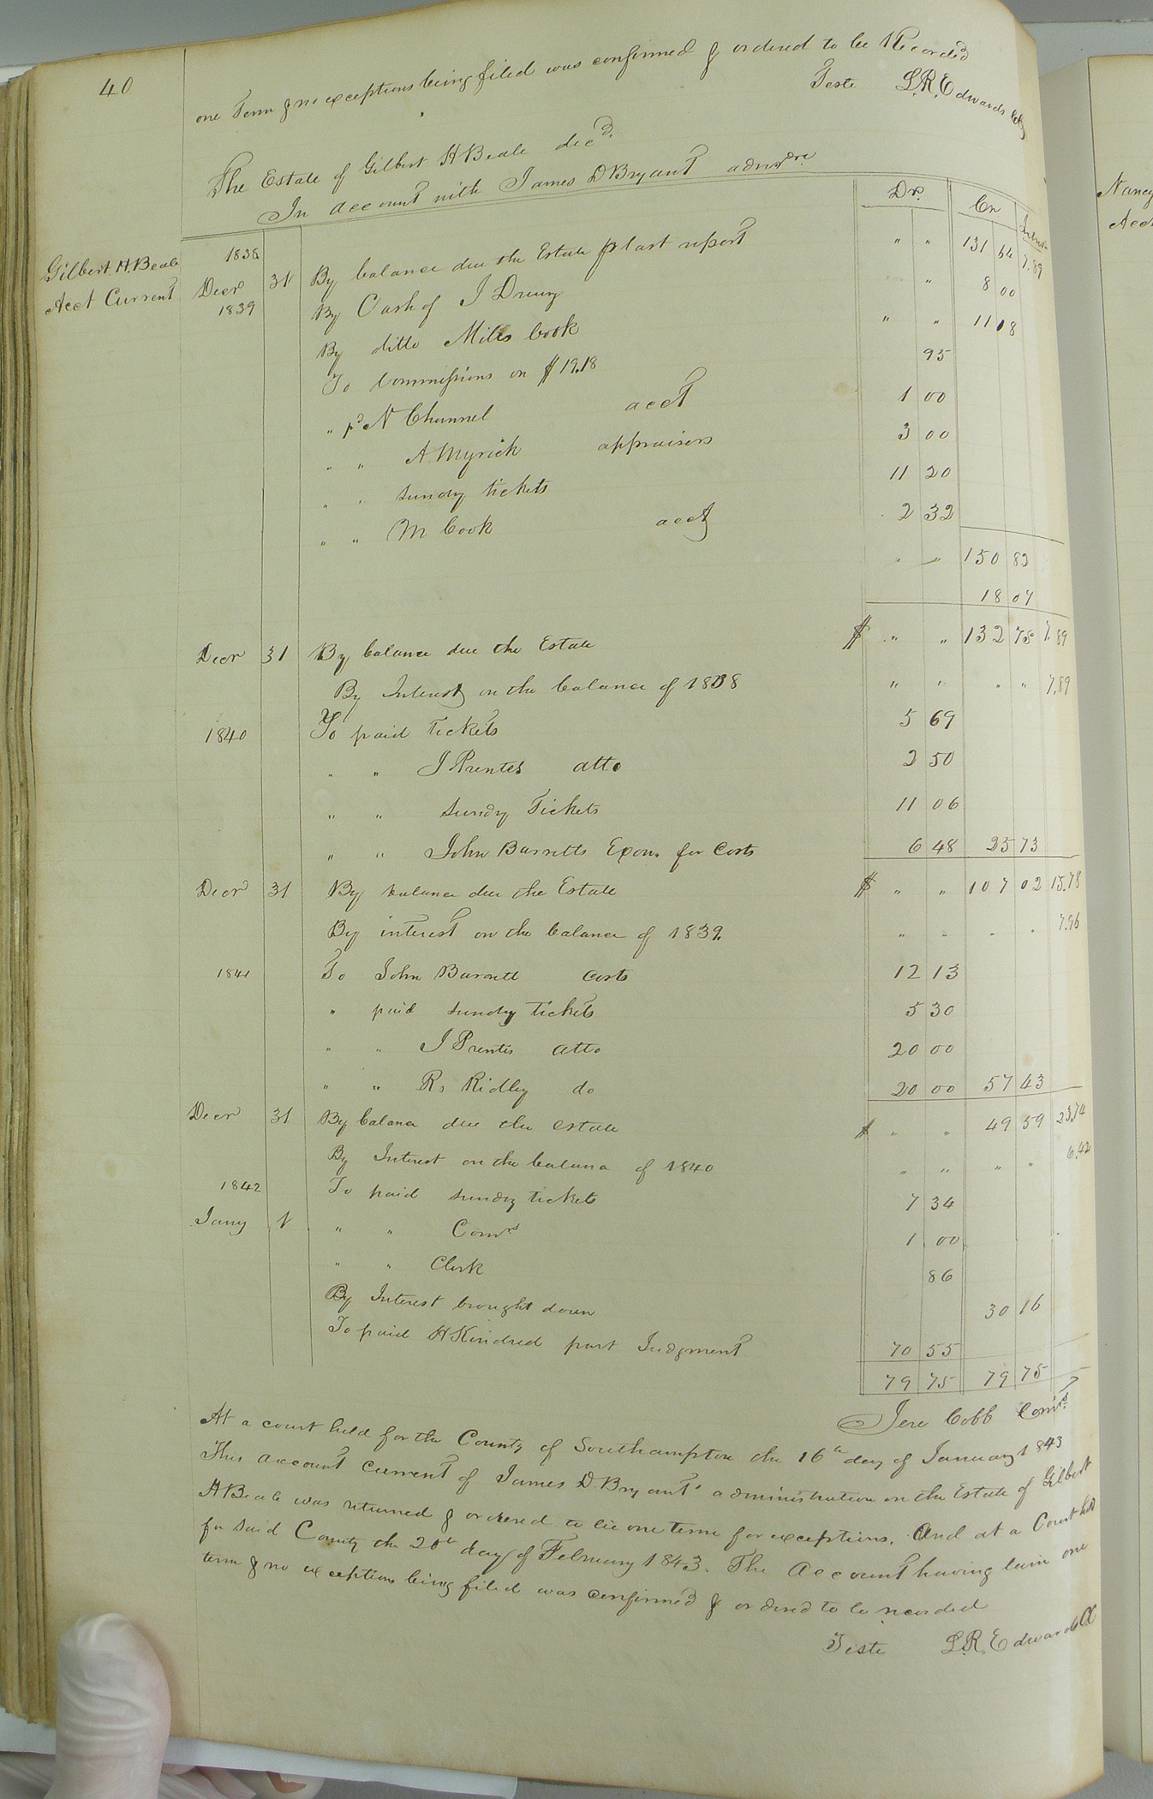 40
one Term & no exceptions being filed was confirmed & ordered to be Recorded
Teste L.R. Edwards
The Estate of Gilbert H Beale decd.
In account with James D Bryant
Dr. Cr Interest
Gilbert H. Beale
Acct Current
1838
Decr 31 By balance due the Estate p last report " " 131 64 7.89
1839 By Cash of J Drury " 8 00
By ditto Miles Cook " " 11 18
To Commissions on $19.18 95
" pd N Channel acct 1 00
" " A Myrick appraisers 3 00
" " sundry tickets 11 20
" " M Cook acct 2 32
" " 150 82
18 07
Decr 31 By balance due the Estate $ " " 132 75 7.89
By Interest on the balance of 1838 " " " " 7.89
1840 To paid Tickets 5 69
" " J Prentes atto 2 50
" " Sundry Tickets 11 06
" " John Barretts Exom for Costs 6 48 25 73
Decr 31 By balance due the Estate $ " " 107 02 15.78
By interest on the balance of 1839. " " " " 7.96
1841 To John Barrett Costs 12 13
" paid sundry tickets 5 30
" " J Prentis atto 20 00
" " R. Ridley do 20 00 57 43
Decr 31 By balance due the estate $ " " 49 59 23,74
By Interest on the balance of 1840 " " " " 6,42
1842 To paid sundry tickets 7 34
Jany 1 " " Comrs 1 00
" " Clerk 86
By Interest brought down 30 16
To paid H Kindred part Judgment 70 55
79 75 79 75
Jere Cobb Comr.
At a court held for the County of Southampton the 16th day of January 1843
This account current of James D. Bryant's administration on the Estate of Gilbert
H Beale was returned & ordered to lie one term for exceptions. And at a Court held
for said County the 20th day of February 1843. The Account having lain one
term & no exceptions being filed was confirmed & ordered to be recorded
Teste L.R. Edwards CC
Nancy